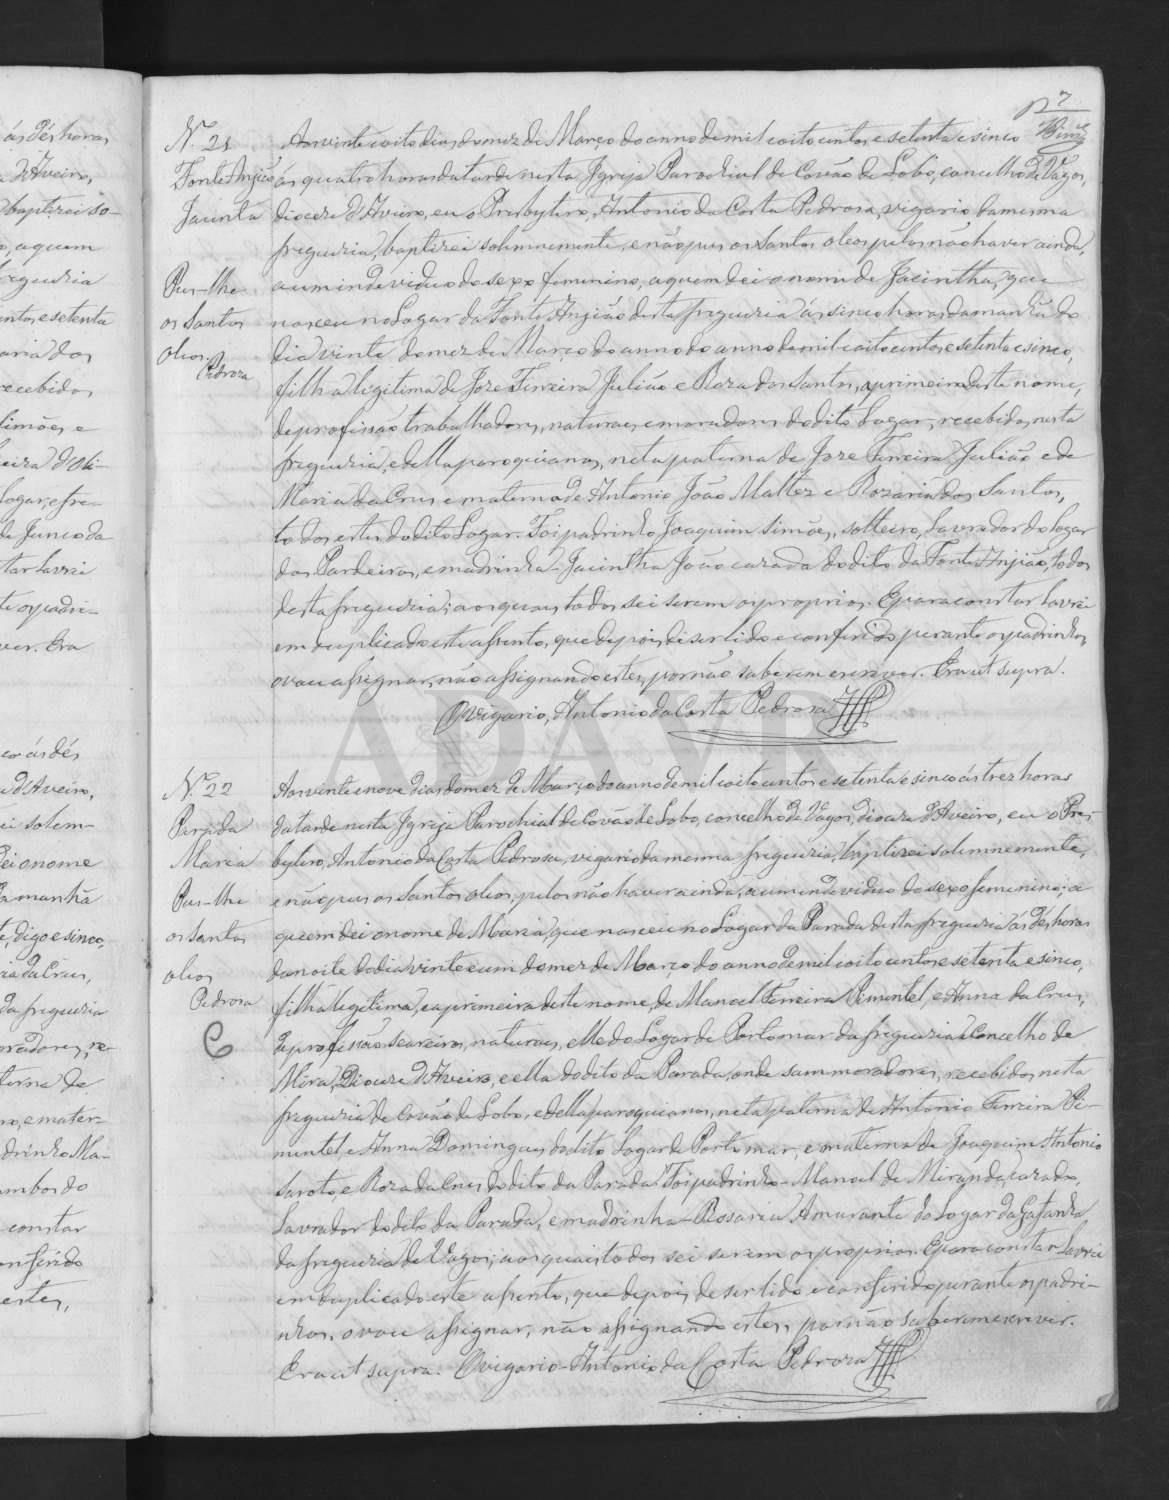 p 7
N. 21
Fonte Anjião
Jacinta
Pus-lhe
os Santos
oleos.
Pedroza
Aos vinte e oito dias do mez de Março do anno de mil e oito centos e setenta e sinco
ás quatro horas da tarde nesta Igreja Parochial de Covão de Lobo, concelho de Vagos,
diocese d'Aveiro, eu o Presbytero, Antonio da Costa Pedrosa, vigario da mesma
freguezia, baptizei solemnemente, e não pus os Santos oleos, pelos não haver ainda,
a um individuo do sexo femenino, a quem dei o nome de Jacintha, que
nasceu no Logar da Fonte Anjião desta freguezia ás sinco horas da manhã do
dia vinte do mez de Março do anno do anno de mil e oito centos e setenta e sinco,
filha legitima de Joze Ferreira Julião e Roza dos Santos, a primeira deste nome,
de profissão trabalhadores, naturaes e moradores do dito Logar, recebidos nesta
freguezia, e della paroquianos, neta paterna de Joze Ferreira Julião e de
Maria da Crus e materna de Antonio João Mattez e Rozaria dos Santos,
todos estes do dito Logar. Foi padrinho Joaquim Simões, solteiro, Lavrador do Logar
dos Pardeiros, e madrinha Jacintha João cazada do dito da Fonte Anjião, todos
desta freguezia; aos quaes todos sei serem os proprios. E para constar lavrei
em duplicado este assento, que depois de ser lido e conferido perante os padrinhos,
o vou assignar, não assignando estes, por não saberem escrever. Era ut supra.
O Vigario, Antonio da Costa Pedrosa
N. 22
Parada
Maria
Pus-lhe
os Santos
oleos
Pedrosa
Aos vinte e nove dias do mez de Março do anno de mil e oito centos e setenta e sinco ás trez horas
da tarde nesta Igreja Parochial de Covão de Lobo, concelho de Vagos, diocese d'Aveiro, eu o Pres-
bytero, Antonio da Costa Pedrosa, vigario da mesma freguezia, baptizei solemnemente,
e não pus os Santos oleos, pelos não haver ainda, a um individuo do sexo femenino; a
quem dei o nome de Maria, que nasceu no Logar da Parada desta freguezia ás dés horas
da noite do dia vinte e um do mez de Março do anno de mil e oito centos e setenta e sinco,
filha legitima, e a primeira deste nome, de Manoel Ferreira Pimentel, e Anna da Crus,
de profissão Seareiros, naturaes, elle do Logar de Portomar da freguezia e Concelho de
Mira, Diocese d'Aveiro, e ella do dito da Parada, onde sam moradores, recebidos nesta
freguezia de Covão de Lobo, e della paroquianos, neta paterna de Antonio Ferreira Pi-
mentel e Anna Domingues do dito Logar de Portomar, e materna de Joaquim Antonio
Saroto, e Roza da Crus do dito da Parada. Foi padrinho Manoel de Miranda, cazado,
Lavrador do dito da Parada, e madrinha Rosaria Amarante do Logar da Gafanha
da freguezia de Vagos; aos quaes todos sei serem os proprios. E para constar Lavrei
em duplicado este assento, que depois de ser lido e conferido perante os padri-
nhos, o vou assignar, não assignando estes, por não saberem escrever.
Era ut supra. O vigario Antonio da Costa Pedroza
ADAVR